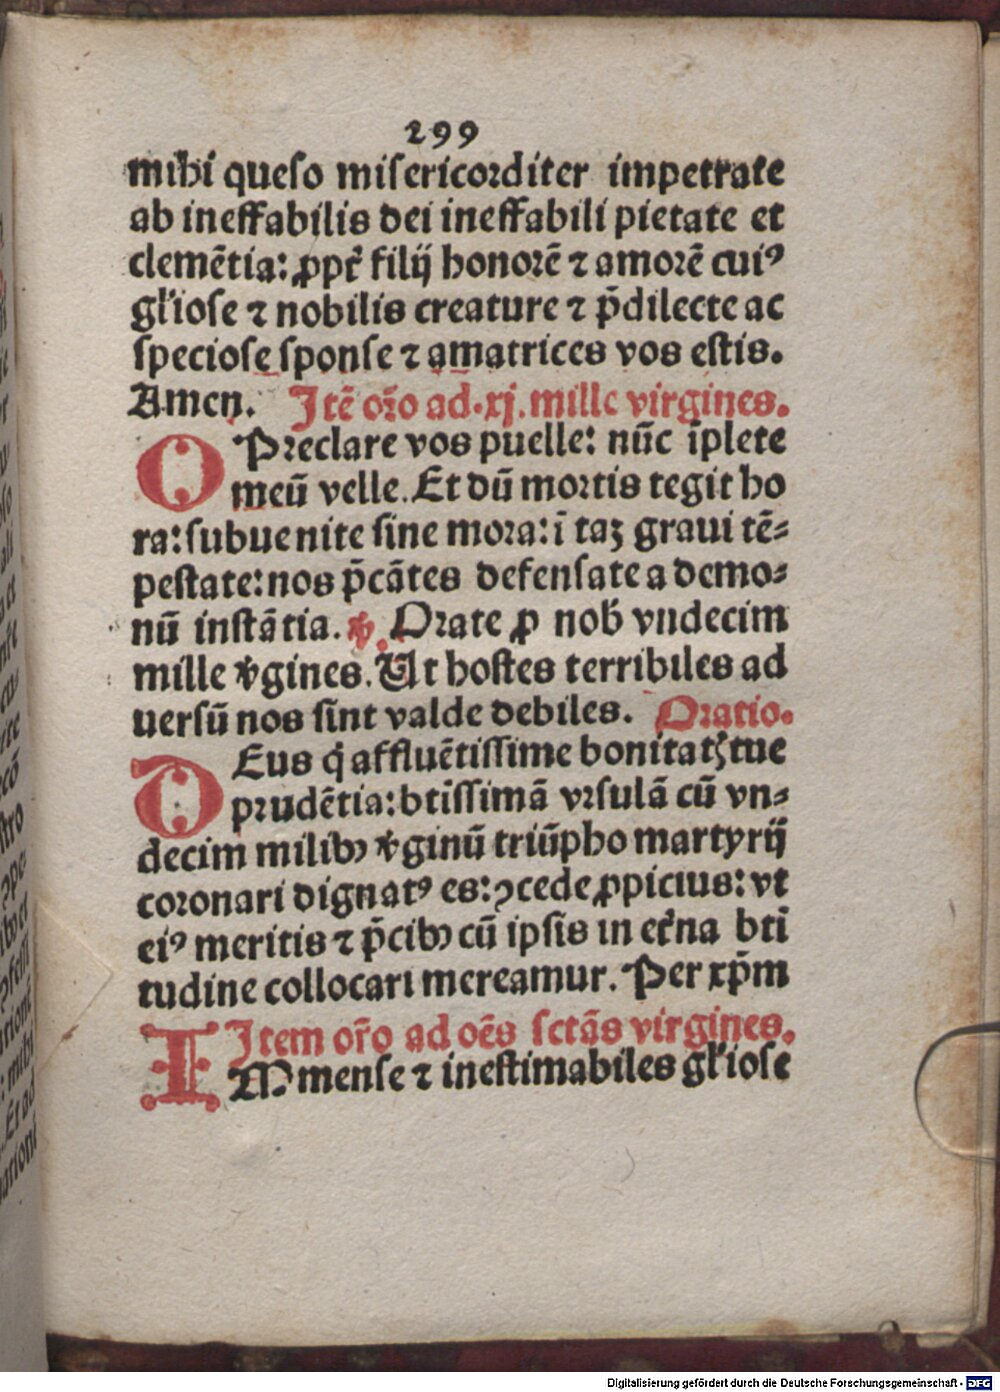 299
mihi queso misericorditer impetrate
ab ineffabilis dei ineffabili pietate et
clemētia: ꝓpt̄ filij honorē ⁊ amorē cuiꝰ
gl'iose ⁊ nobilis creature ⁊ p̄dilecte ac
speciose sponse ⁊ amatrices vos estis.
Amen. Itē or̄o ad .xj. mille virgines.
O Preclare vos puelle: nūc īplete
meū velle. Et dū mortis tegit ho
ra: subuenite sine mora: ī taʒ graui tē⸗
pestate: nos p̄cātes defensate a demo⸗
nū instātia. ℣. Orate ꝓ nob̄ vndecim
mille ꝟgines. Ut hostes terribiles ad
uersū nos sint valde debiles. Oratio.
DEus q̄ affluētissime bonitatꝫ tue
prudētia: btissimā vrsulā cū vn⸗
decim milibꝰ ꝟginū triūpho martyrij
coronari dignatꝰ es: ꝯcede ꝓpicius: vt
eiꝰ meritis ⁊ p̄cibꝰ cū ipsis in et̄na bti
tudine collocari mereamur. Per xp̄m
Item or̄o ad oēs sctās virgines.
IMmense ⁊ inestimabiles gl'iose
Digitalisierung gefördert durch die Deutsche Forschungsgemeinschaft - DFG